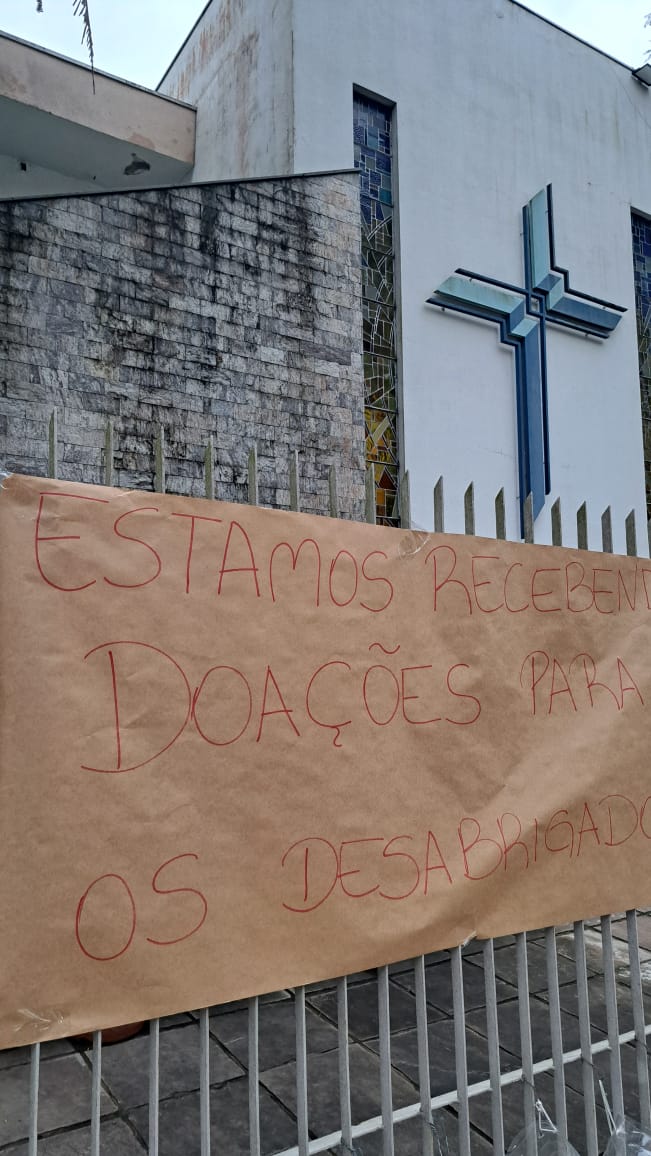 ESTAMOS RECEBEN
DOAÇÕES PARA
OS DESABRIGADO